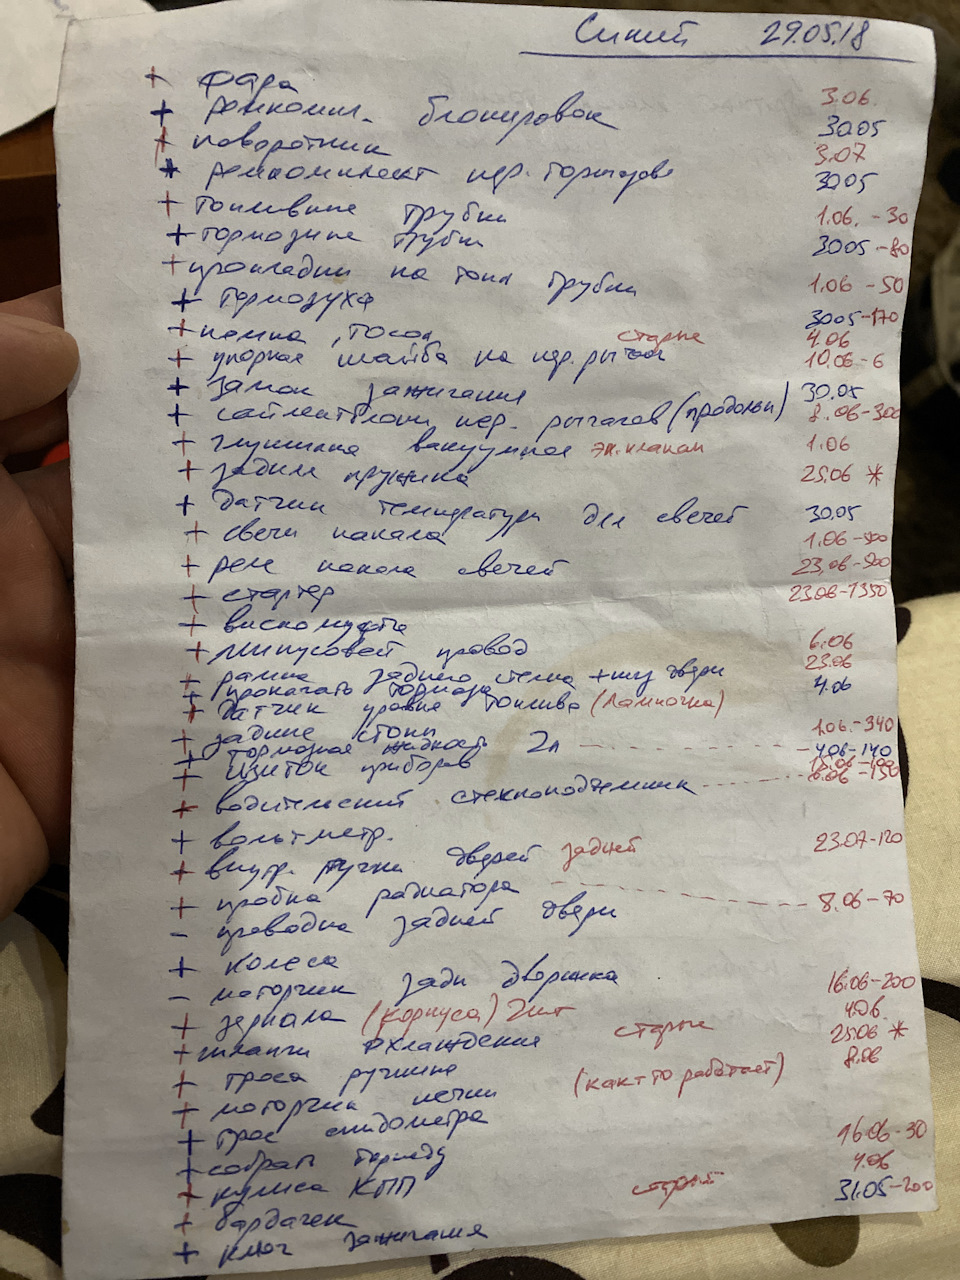 Синий 29.05.18
+ фара 3.06.
+ Ремкомпл. блокировок 30.05
+ поворотник 3.07
+ ремкомплект пер. тормозов 30.05
+ топливные трубки 1.06. -30
+ тормозные трубки 30.05 -80
+ прокладки на топл трубки 1.06 -50
+ тормозуха 30.05 -170
+ помпа, тосол старые 4.06
+ упорная шайба на пер. рычаг 10.06 - 6
+ замок зажигания 30.05
+ сайлентблоки пер. рычагов (продольн) 8.06 -300
+ глушилка вакуумная эл. клапан 1.06
+ задняя пружина 25.06 *
+ датчик температуры для свечей 30.05
+ свечи накала 1.06 -
+ реле накала свечей 23.06 -
+ стартер 23.06 -1350
+ вискомуфта
+ минусовой провод 6.06
+ рамка заднего стекла + низ двери 23.06
+ прокачать тормоза 4.06
+ Датчик уровня топлива (Лампочка)
+ задние стопы 1.06. -340
+ тормозная жидкость 2л - 4.06 -140
+ Щиток приборов
+ водительский стеклоподъемник 6.06 -150
+ вольтметр.
+ внутр. ручки дверей задней 23.07 -120
+ пробка радиатора - 8.06 -70
- проводка задней двери
+ колеса
- моторчик задн дворника 16.06 -200
+ зеркала (корпуса) 2шт 4.06.
+ шланги охлаждения старые 25.06 *
+ троса ручника 8.06
+ моторчик печки (как то работает)
+ трос спидометра 16.06 -30
+ собрать торпеду 4.06
+ кулиса КПП старый 31.05 -200
+ бардачек
+ ключ зажигания